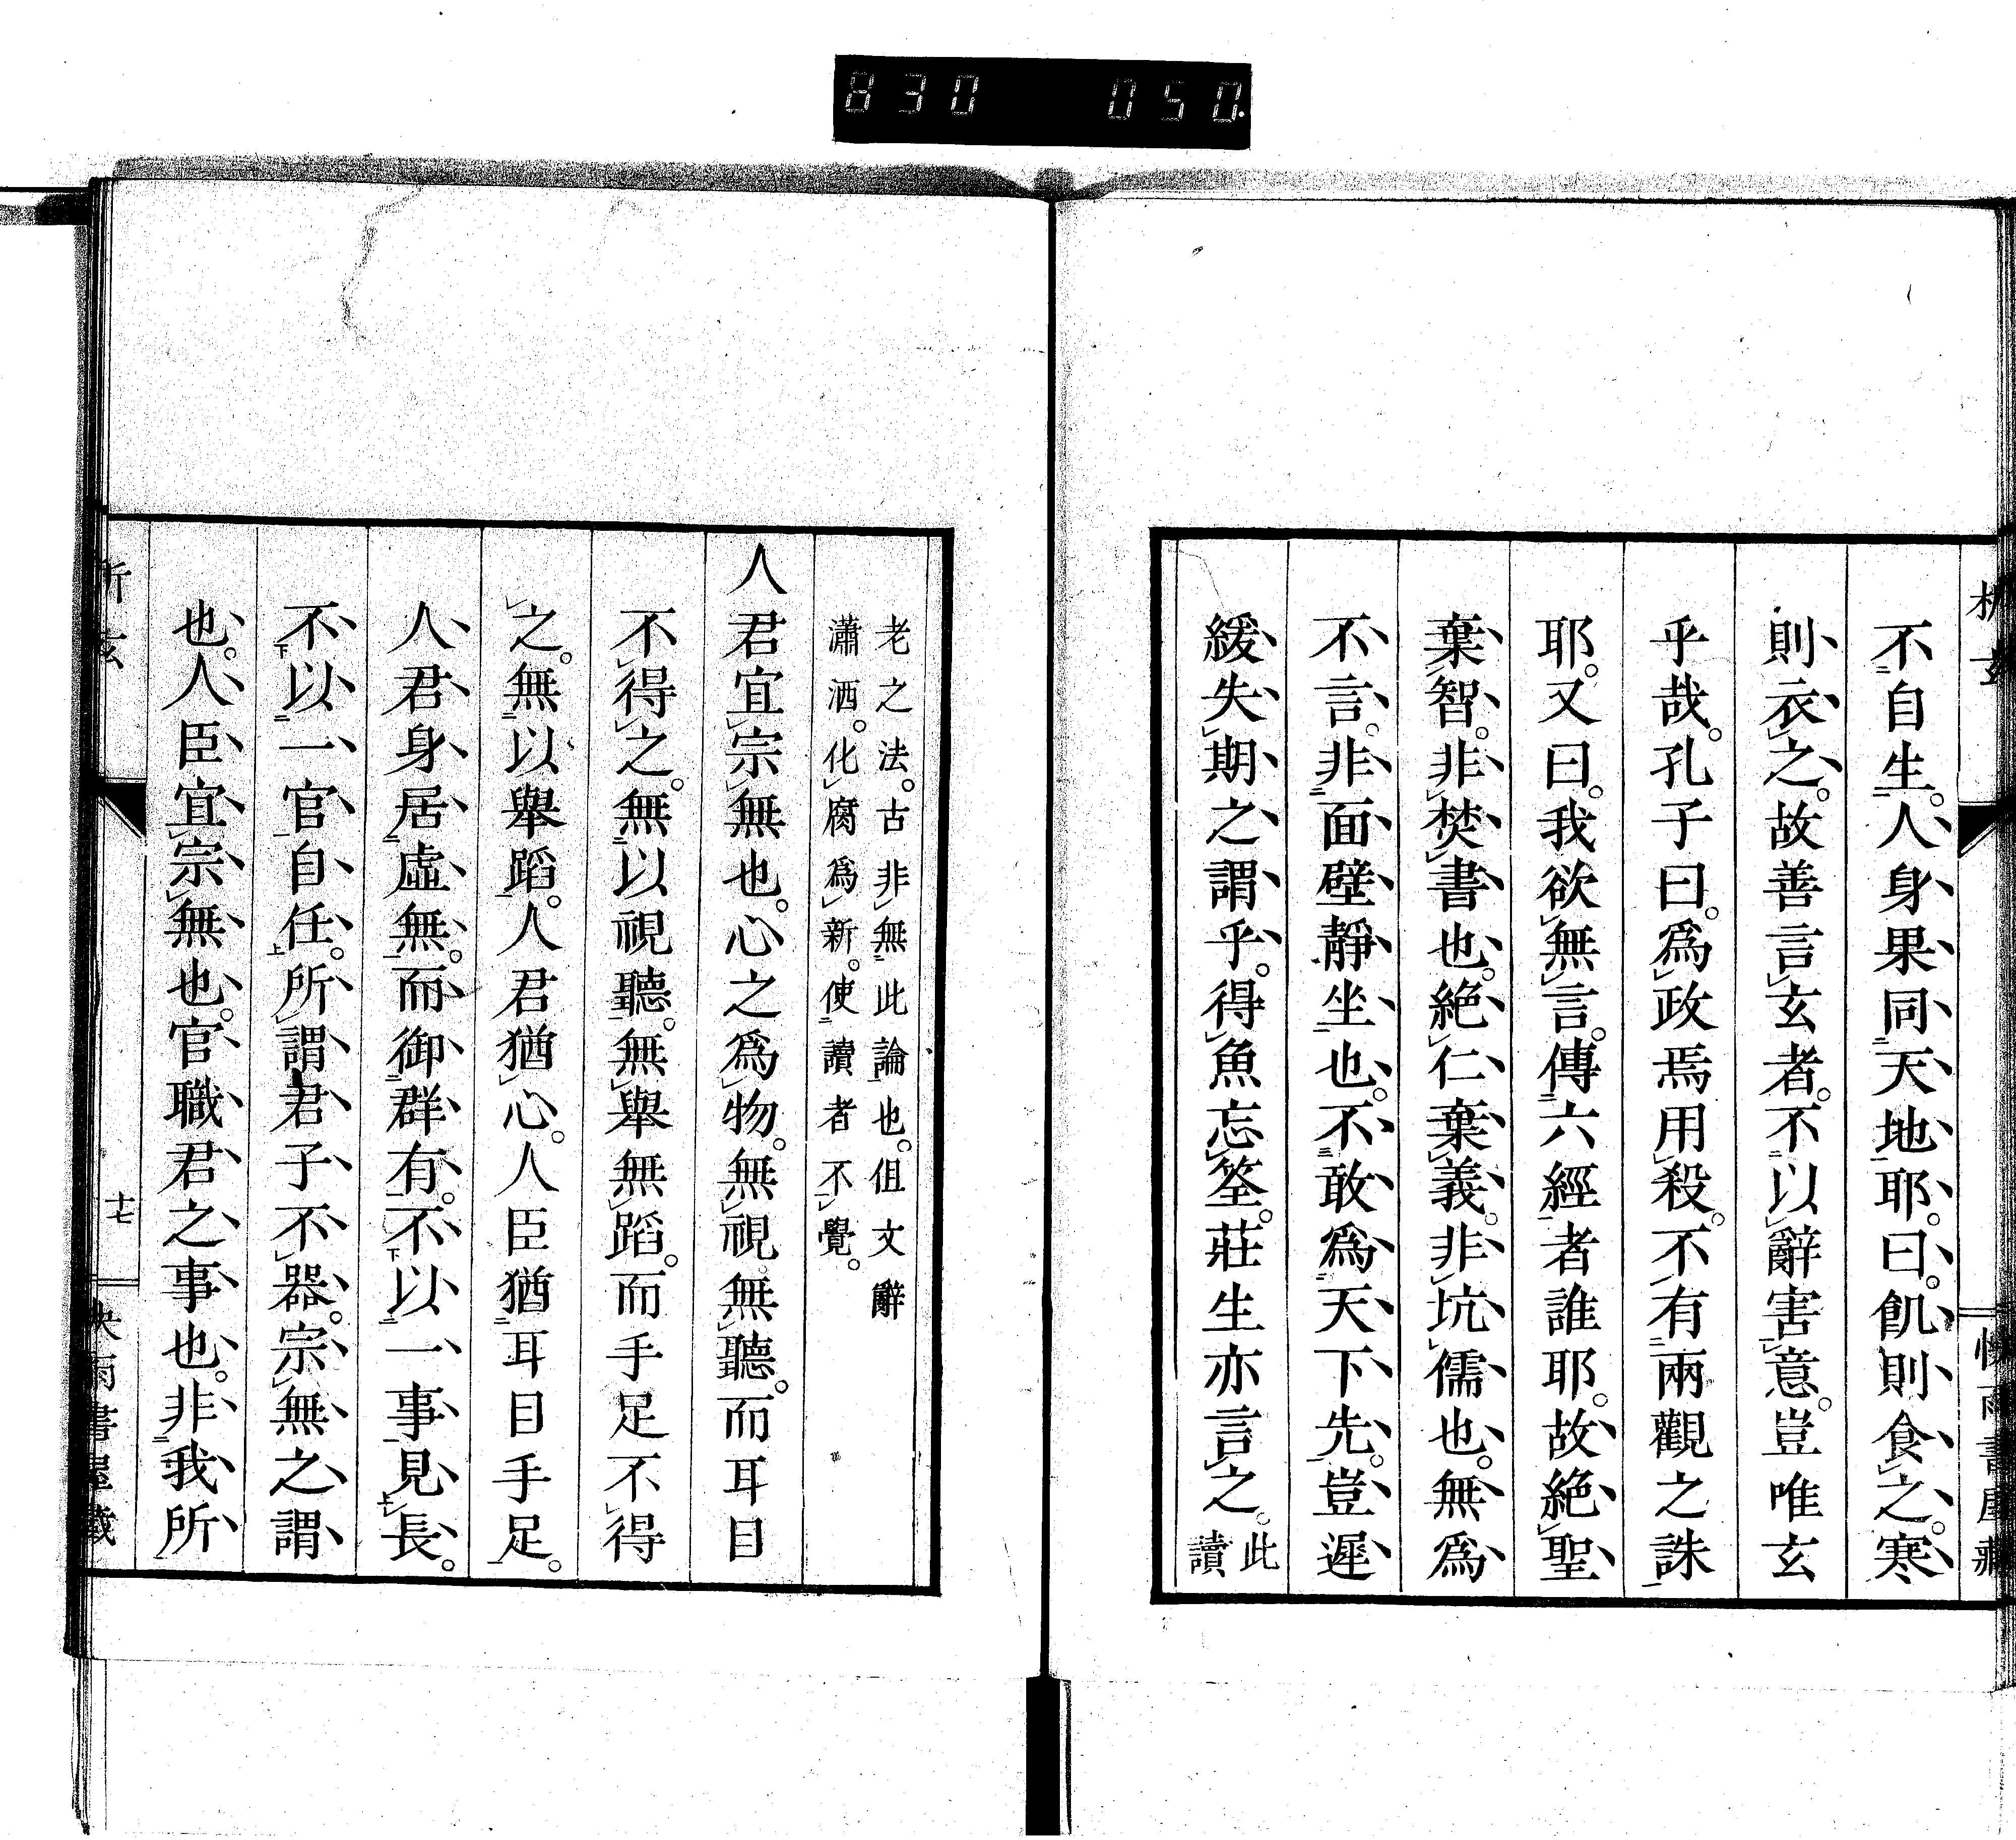 830 050.
析玄
快雨書屋藏
不自生。人身果同天地耶。曰。飢則食之。寒
則衣之。故善言玄者。不以辭害意。豈唯玄
乎哉。孔子曰。爲政焉用殺。不有兩觀之誅
耶。又曰。我欲無言。傳六經者誰耶。故絶聖
棄智。非焚書也。絶仁棄義。非坑儒也。無爲
不言。非面壁靜坐也。不敢爲天下先。豈遲
緩失期之謂乎。得魚忘筌。莊生亦言之。此
讀
老之法。古非無此論也。但文辭
瀟洒。化腐爲新。使讀者不覺。
人君宜宗無也。心之爲物。無視無聽。而耳目
不得之。無以視聽。無舉無蹈。而手足不得
之。無以舉蹈。人君猶心。人臣猶耳目手足。
人君身居虛無。而御群有。不以一事見長。
不以一官自任。所謂君子不器。宗無之謂
也。人臣宜宗無也。官職君之事也。非我所
析玄
十七
快雨書屋藏